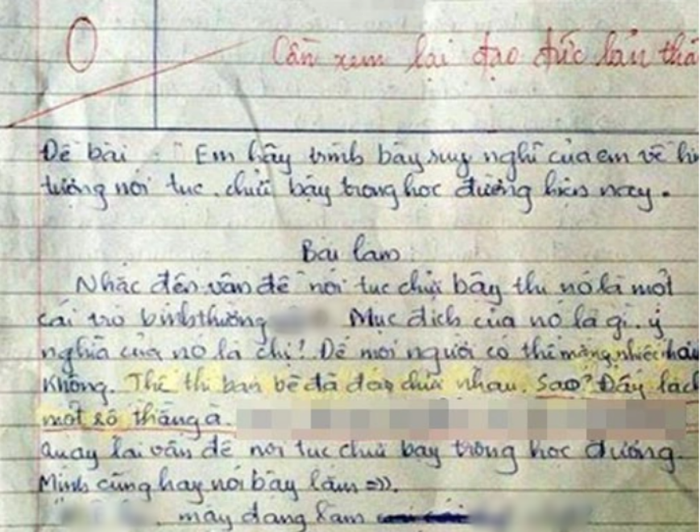 0
Cần xem lại đạo đức bản thâ
Đề bài : "Em hãy trình bày suy nghĩ của em về hiện
tượng nói tục, chửi bậy trong học đường hiện nay.
Bài làm
Nhắc đến vấn đề nói tục chửi bậy thì nó là một
cái trò bình thường Mục đích của nó là gì, ý
nghĩa của nó là chi! Để mọi người có thể mắng nhiếc nhau
không. Thế thì bạn bè đã đảo chửi nhau. Sao? Đấy là
một số thằng à
Quay lại vấn đề nói tục chửi bậy trong học đường
Mình cũng hay nói bậy lắm =)).
mày đang làm